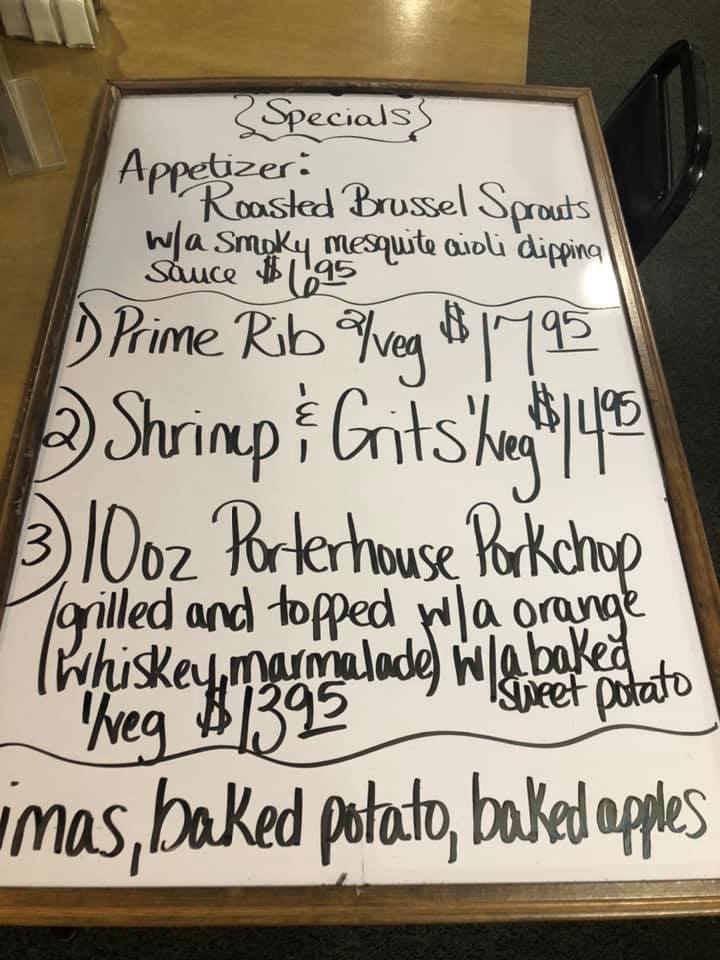 Specials
Appetizer:
Roasted Brussel Sprouts
w/a smoky mesquite aioli dipping
sauce $6.95
1) Prime Rib 2/veg $17.95
2) Shrimp & Grits 1/veg $14.95
3) 10oz Porterhouse Porkchop
(grilled and topped w/a orange
whiskey marmalade) w/a baked
sweet potato
1/veg $13.95
imas, baked potato, baked apples